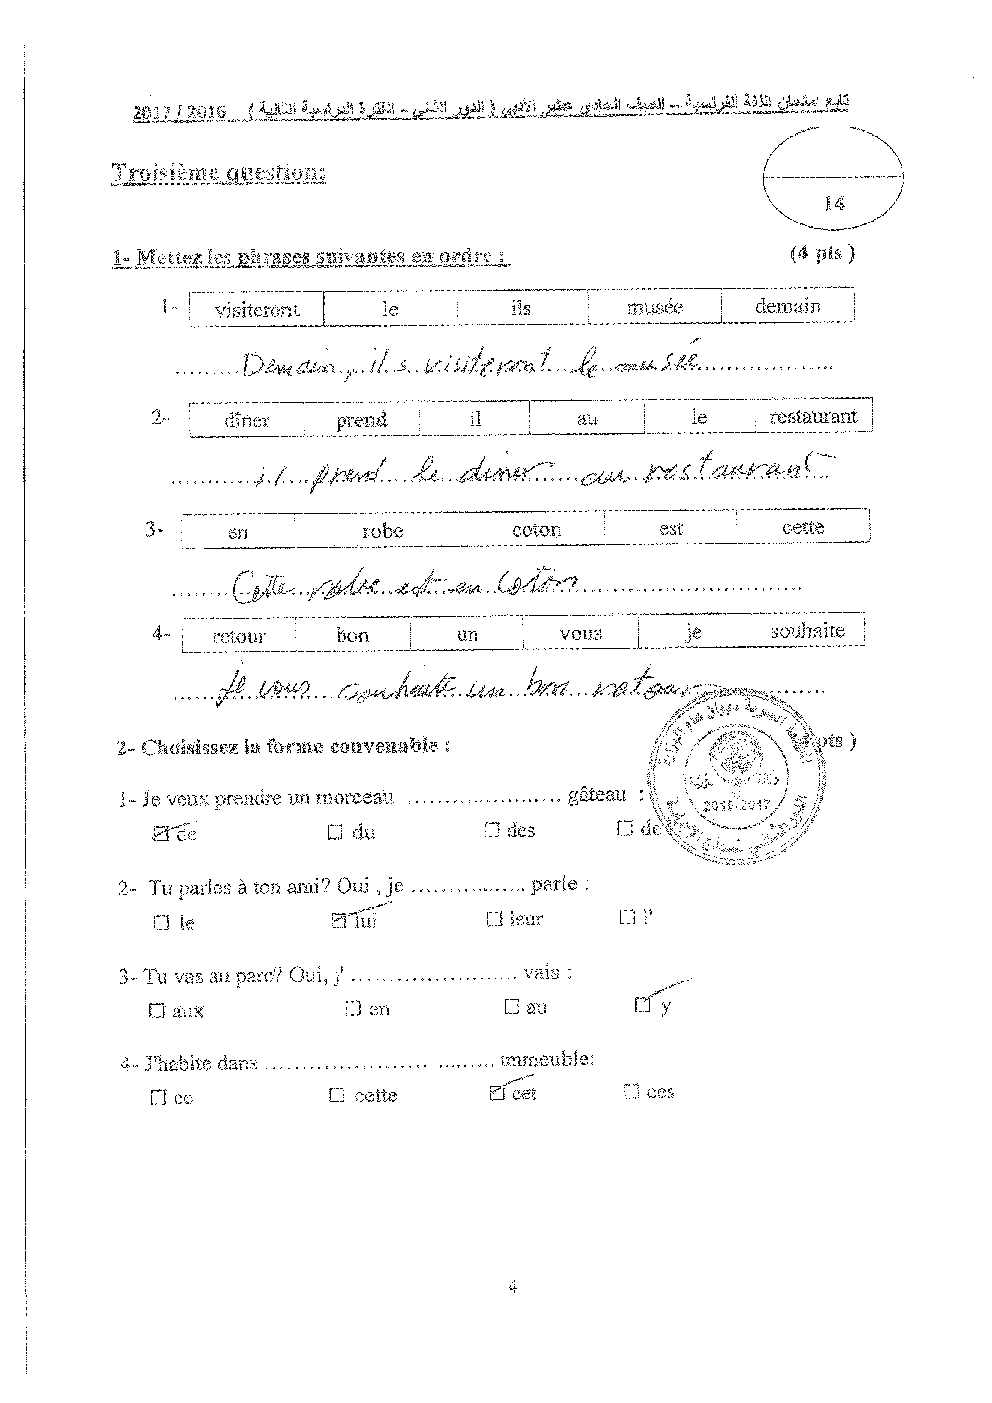 تابع امتحان اللغة الفرنسية – الصف الحادي عشر الأدبي ( الدور الثاني – الفترة الدراسية الثانية ) 2016 / 2017
Troisième question:
14
1- Mettez les phrases suivantes en ordre : (4 pts )
1- visiteront le ils musée demain
Demain, ils visiteront le musée
2- dîner prend il au le restaurant
il prend le dîner au restaurant
3- en robe coton est cette
Cette robe est en coton
4- retour bon un vous je souhaite
Je vous souhaite un bon retour
2- Choisissez la forme convenable : pts )
1- Je veux prendre un morceau ...................... gâteau :
☑ de ☐ du ☐ des ☐ de
2016-2017
2- Tu parles à ton ami? Oui , je ................ parle :
☐ le ☑ lui ☐ leur ☐ l'
3- Tu vas au parc? Oui, j' ....................... vais :
☐ aux ☐ en ☐ au ☑ y
4- J'habite dans ................................ immeuble:
☐ ce ☐ cette ☑ cet ☐ ces
4